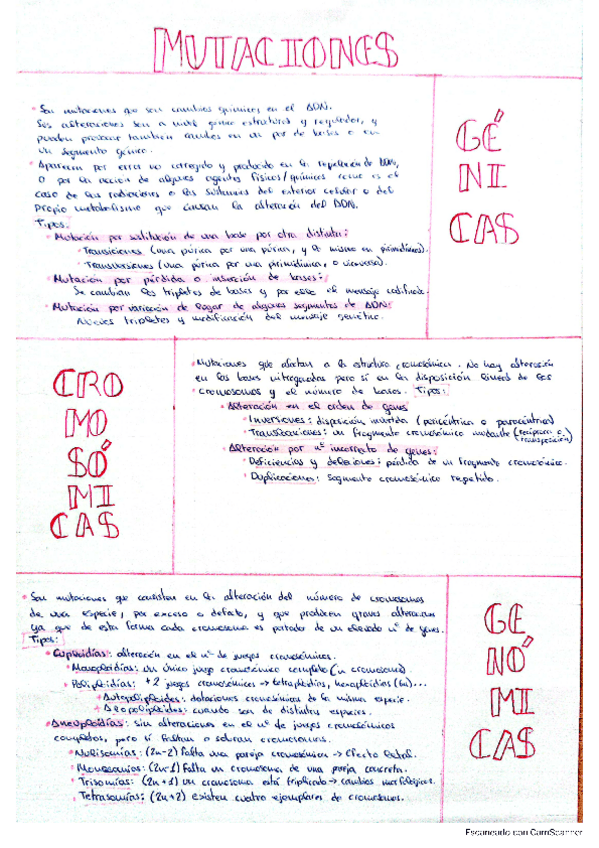 MUTACIONES
• Son mutaciones que son cambios químicos en el ADN.
Sus alteraciones son a nivel génico estructural y regulador, y
pueden provocar también cambios en un par de bases o en
un segmento génico.
• Aparecen por error no corregido y producido en la replicación de ADN,
o por la acción de algunos agentes físicos/químicos como es el
caso de las radiaciones o las sustancias del exterior celular o del
propio metabolismo que causan la alteración del ADN.
Tipos:
• Mutación por sustitución de una base por otra distinta:
• Transiciones (una púrica por una púrica, y lo mismo en pirimidínicas).
• Transversiones (una púrica por una pirimidínica, o viceversa).
• Mutación por pérdida o inserción de bases:
Se cambian los tripletes de bases y por ello el mensaje codificado.
• Mutación por variación de lugar de algunos segmentos de ADN:
Nuevos tripletes y modificación del mensaje genético.
GÉ
NI
CAS
CRO
MO
SÓ
MI
CAS
• Mutaciones que afectan a la estructura cromosómica. No hay alteración
en las bases nitrogenadas pero sí en la disposición lineal de los
cromosomas y el número de bases. Tipos:
• Alteración en el orden de genes
• Inversiones: disposición invertida (pericéntrica o paracéntrica)
• Translocaciones: un fragmento cromosómico mediante (recíproca o transposición)
• Alteración por nº incorrecto de genes:
• Deficiencias y deleciones: pérdida de un fragmento cromosómico.
• Duplicaciones: segmento cromosómico repetido.
• Son mutaciones que consisten en la alteración del número de cromosomas
de una especie, por exceso o defecto, y que producen graves alteraciones
ya que de esta forma cada cromosoma es portado de un elevado nº de genes.
Tipos:
• Euploidías: alteración en el nº de juegos cromosómicos.
• Monoploidías: un único juego cromosómico completo (n cromosomas).
• Poliploidías: +2 juegos cromosómicos → tetraploidías, hexaploidías (6n)...
• Autopoliploides: dotaciones cromosómicas de la misma especie.
• Alopoliploides: cuando son de distintas especies.
• Aneuploidías: sin alteraciones en el nº de juegos cromosómicos
completos, pero sí faltan o sobran cromosomas.
• Nulisomías: (2n-2) Falta una pareja cromosómica → Efecto letal.
• Monosomías: (2n-1) Falta un cromosoma de una pareja concreta.
• Trisomías: (2n+1) un cromosoma está triplicado → cambios morfológicos.
• Tetrasomías: (2n+2) existen cuatro ejemplares de cromosomas.
GE
NÓ
MI
CAS
Escaneado con CamScanner